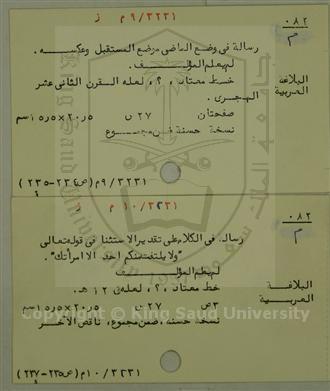 ٠٨٢
م
٩/٣٢٣١ م ز
رسالة فى وضع الماضى موضع المستقبل وعكسه .
لم يعلم المؤلف .
البلاغة العربية
خط معتاد ، ؟ ، لعله القرن الثانى عشر
الهجرى .
صفحتان ٢٧ س ٢٠٫٥×١٥٫٥ سم
نسخة حسنة ضمن مجموع
٩/٣٢٣١ م (ص ٢٣٤-٢٣٥)
٠٨٢
م
١٠/٣٢٣١ م ز
رسالة فى الكلام على تقدير الاستثنا فى قوله تعالى
"ولا يلتفت منكم احد الا امرأتك" .
لم يعلم المؤلف
البلاغة
العربية
خط معتاد ، ؟ ، لعله ق ١٢ هـ .
٣ ص ٢٧ س ٢٠٫٥×١٥٫٥ سم
نسخة حسنة ، ضمن مجموع ، ناقص الآخر
١٠/٣٢٣١ م (ص ٢٣٥-٢٣٧)
Copyright © King Saud University